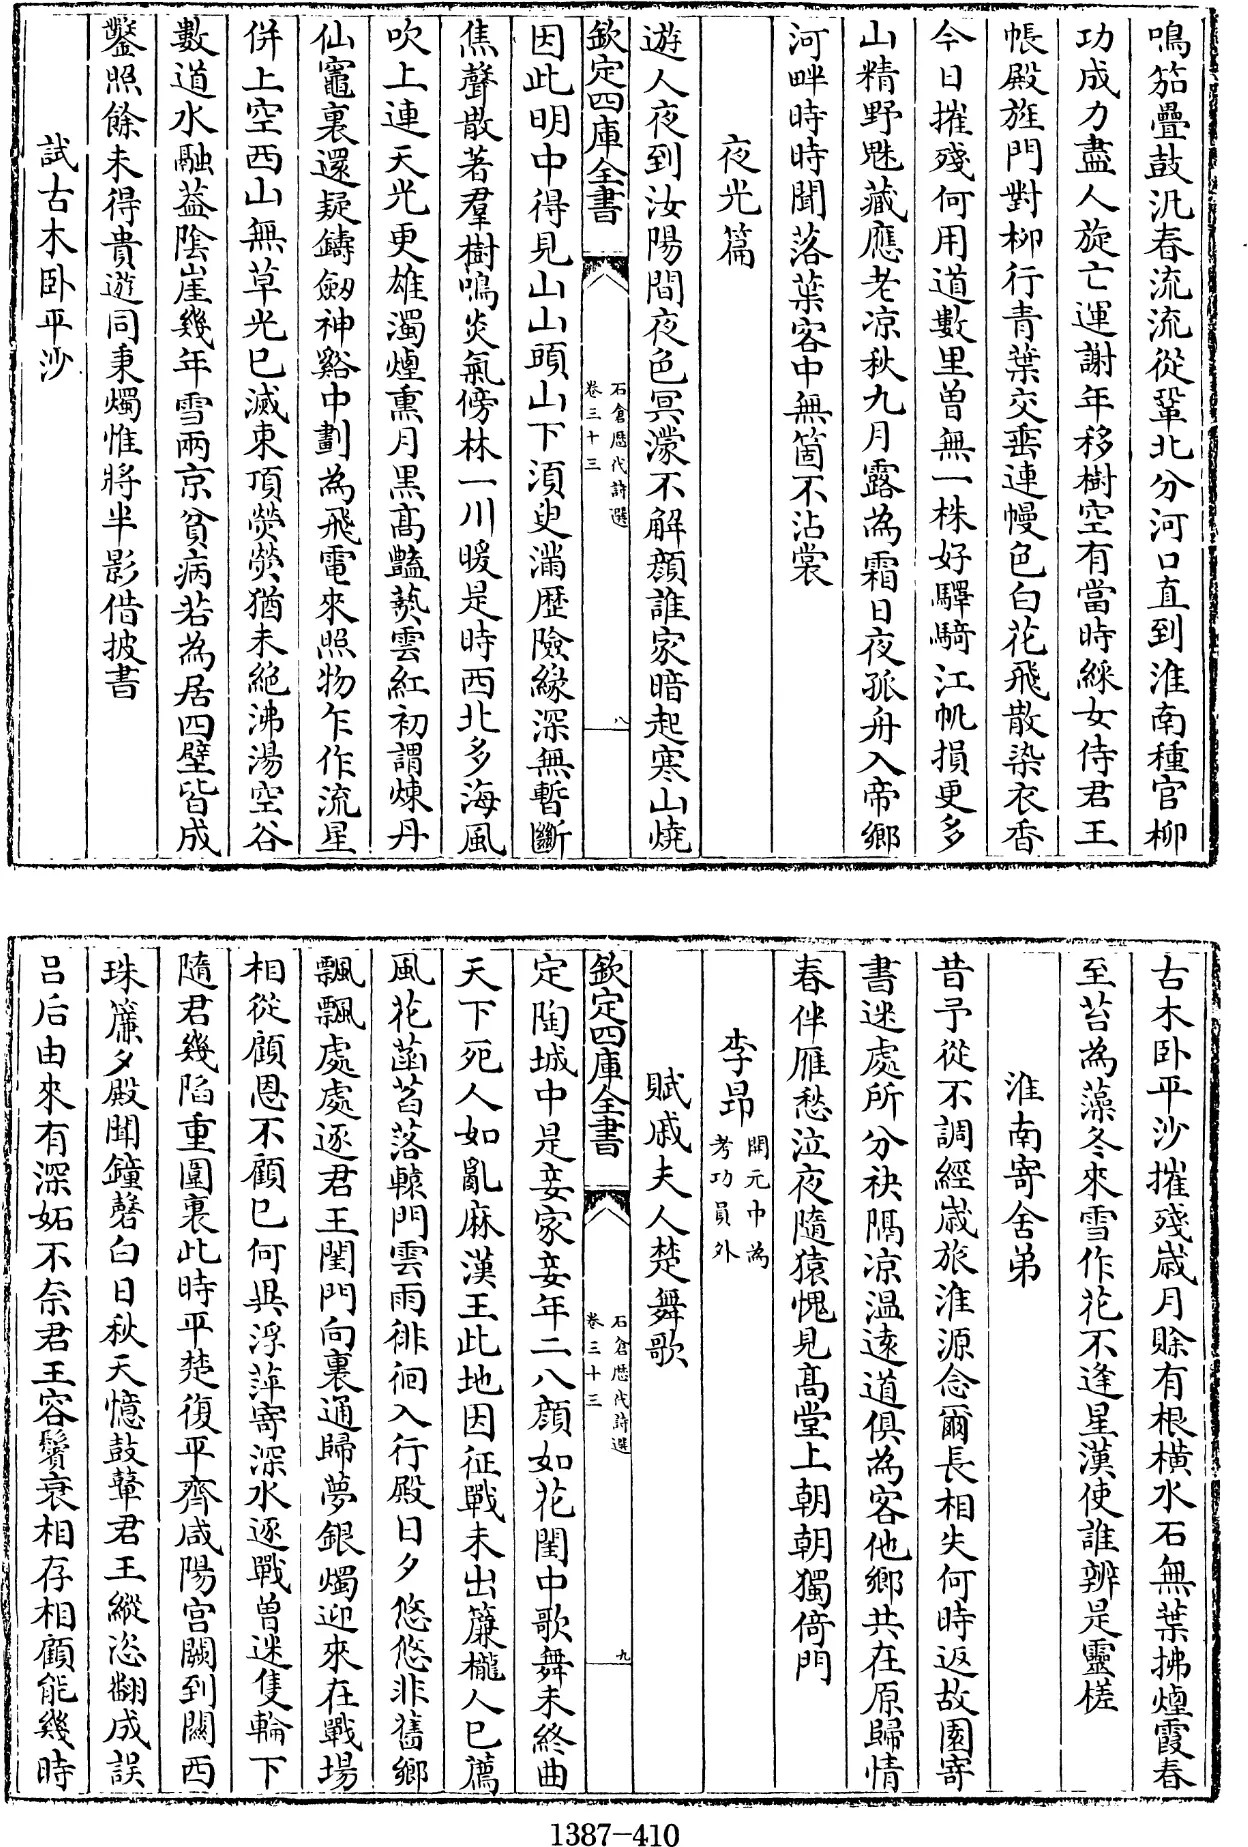 鳴笳疊鼓汎春流流從鞏北分河口直到淮南種官柳
功成力盡人旋亡運謝年移樹空有當時綵女侍君王
帳殿旌門對柳行青葉交垂連幔色白花飛散染衣香
今日摧殘何用道數里曽無一株好驛騎江帆損更多
山精野魅藏應老凉秋九月露為霜日夜孤舟入帝鄉
河畔時時聞落葉客中無箇不沾裳
夜光篇
遊人夜到汝陽間夜色冥濛不解顔誰家暗起寒山燒
欽定四庫全書
石倉歴代詩選
卷三十三
八
因此明中得見山山頭山下湏臾滿歴險緣深無暫斷
焦聲散著羣樹鳴炎氣傍林一川暖是時西北多海風
吹上連天光更雄濁煙熏月黒髙豔爇雲紅初謂煉丹
仙竈裏還疑鑄劔神谿中劃為飛電來照物乍作流星
併上空西山無草光已滅東頂熒熒猶未絶沸湯空谷
數道水融葢陰崖幾年雪兩京貧病若為居四壁皆成
鑿照餘未得貴遊同秉燭惟將半影借披書
試古木卧平沙
古木卧平沙摧殘歳月賒有根橫水石無葉拂煙霞春
至苔為藻冬來雪作花不逢星漢使誰辨是靈槎
淮南寄舍弟
昔予從不調經歳旅淮源念爾長相失何時返故園寄
書迷處所分袂隔凉溫逺道俱為客他鄉共在原歸情
春伴雁愁泣夜隨猿愧見髙堂上朝朝獨倚門
李昂
開元中為
考功員外
賦戚夫人楚舞歌
欽定四庫全書
石倉歴代詩選
卷三十三
九
定陶城中是妾家妾年二八顔如花閨中歌舞未終曲
天下死人如亂麻漢王此地因征戰未出簾櫳人已薦
風花菡萏落轅門雲雨徘徊入行殿日夕悠悠非舊鄉
飄飄處處逐君王閨門向裏通歸夢銀燭迎來在戰場
相從顧恩不顧已何異浮萍寄深水逐戰曽迷隻輪下
隨君幾陷重圍裏此時平楚復平齊咸陽宫闕到關西
珠簾夕殿聞鐘磬白日秋天憶鼓鼙君王縱恣翻成誤
吕后由來有深妬不奈君王容鬢衰相存相顧能幾時
1387-410